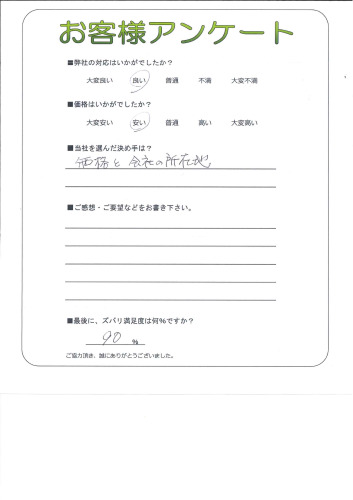 お客様アンケート
■弊社の対応はいかがでしたか？
大変良い 良い 普通 不満 大変不満
■価格はいかがでしたか？
大変安い 安い 普通 高い 大変高い
■当社を選んだ決め手は？
価格と会社の所在地
■ご感想・ご要望などをお書き下さい。
■最後に、ズバリ満足度は何％ですか？
90 %
ご協力頂き、誠にありがとうございました。